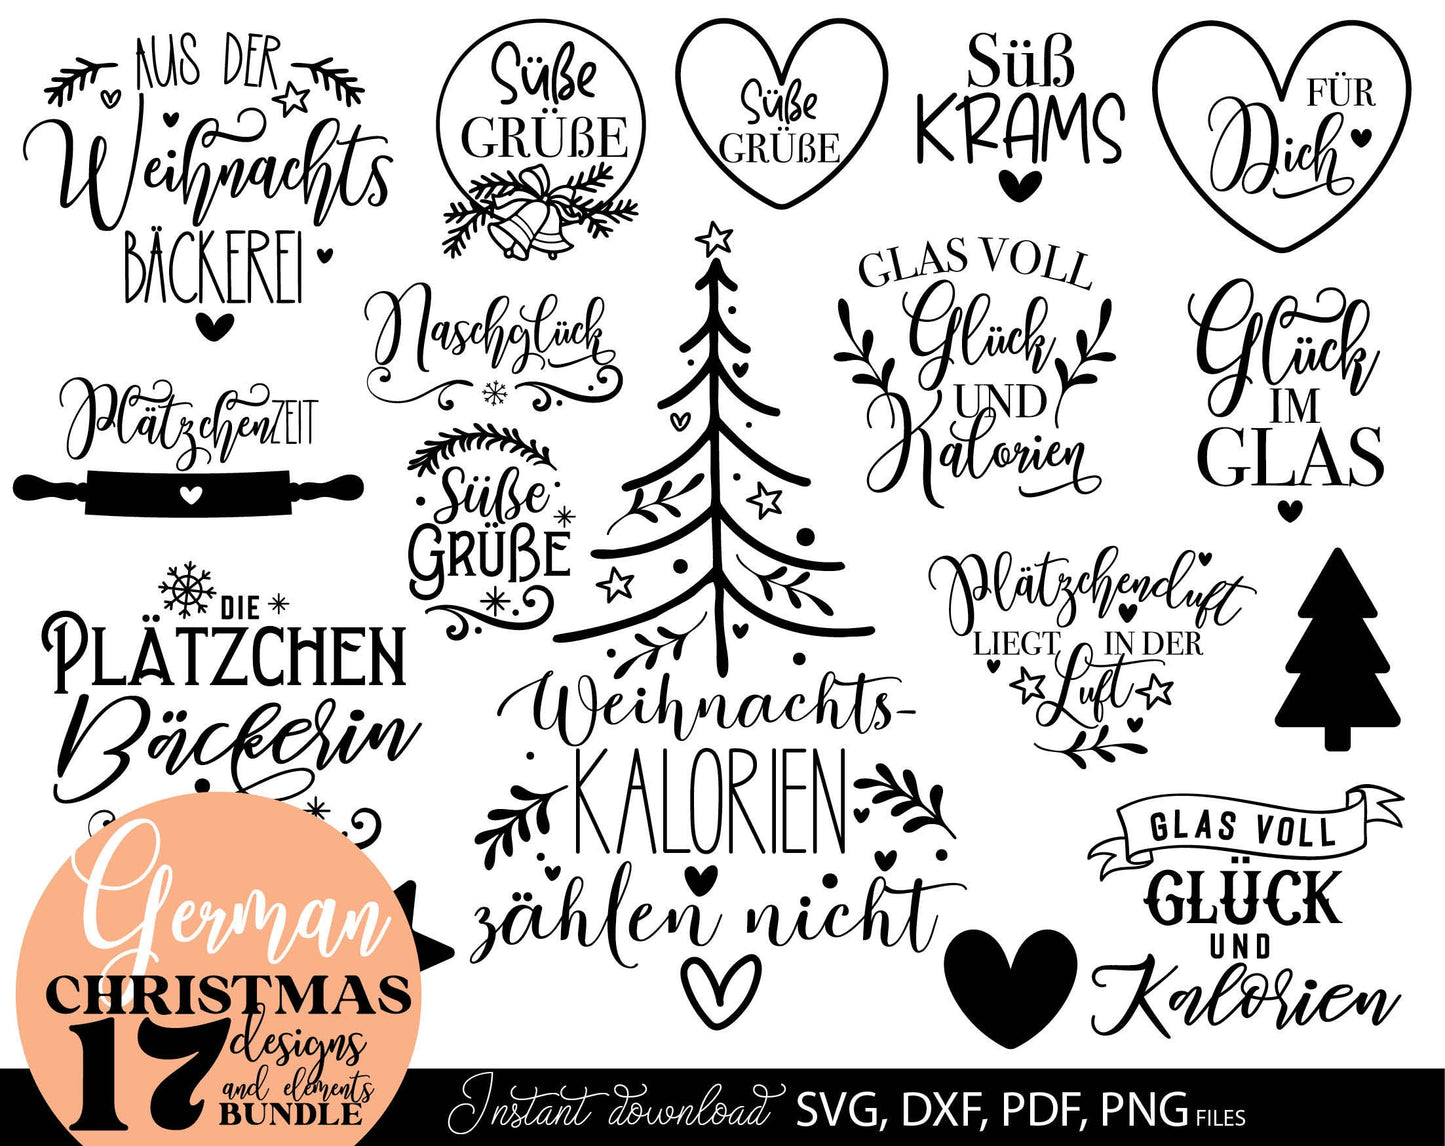 AUS DER
Weihnachts
BÄCKEREI
Süße
GRÜßE
Süße
GRÜßE
Süß
KRAMS
FÜR
Dich
Naschglück
GLAS VOLL
Glück
UND
Kalorien
Glück
IM
GLAS
PlätzchenZEIT
Süße
GRÜßE
DIE
PLÄTZCHEN
Bäckerin
Plätzchenduft
LIEGT IN DER
Luft
Weihnachts-
KALORIEN
zählen nicht
GLAS VOLL
GLÜCK
UND
Kalorien
German
CHRISTMAS
17 designs
and elements
BUNDLE
Instant download SVG, DXF, PDF, PNG FILES